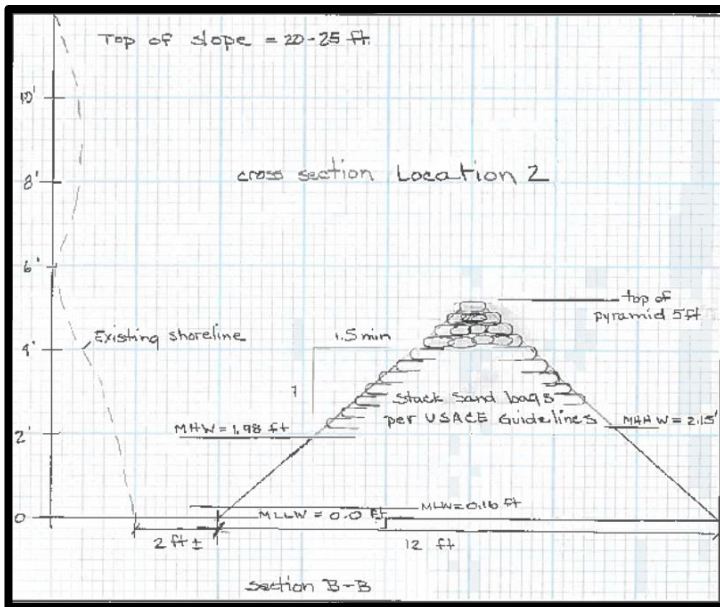 Top of slope = 20-25 ft.
10'
8'
cross section Location 2
6'
top of
pyramid 5ft
Existing shoreline
1.5 min
4'
1
Stack Sand bags
per USACE Guidelines
MHW = 1.98 ft
MHHW = 2.15'
2'
MLW=0.16 ft
0
MLLW = 0.0 ft
2 ft ±
12 ft
Section B-B